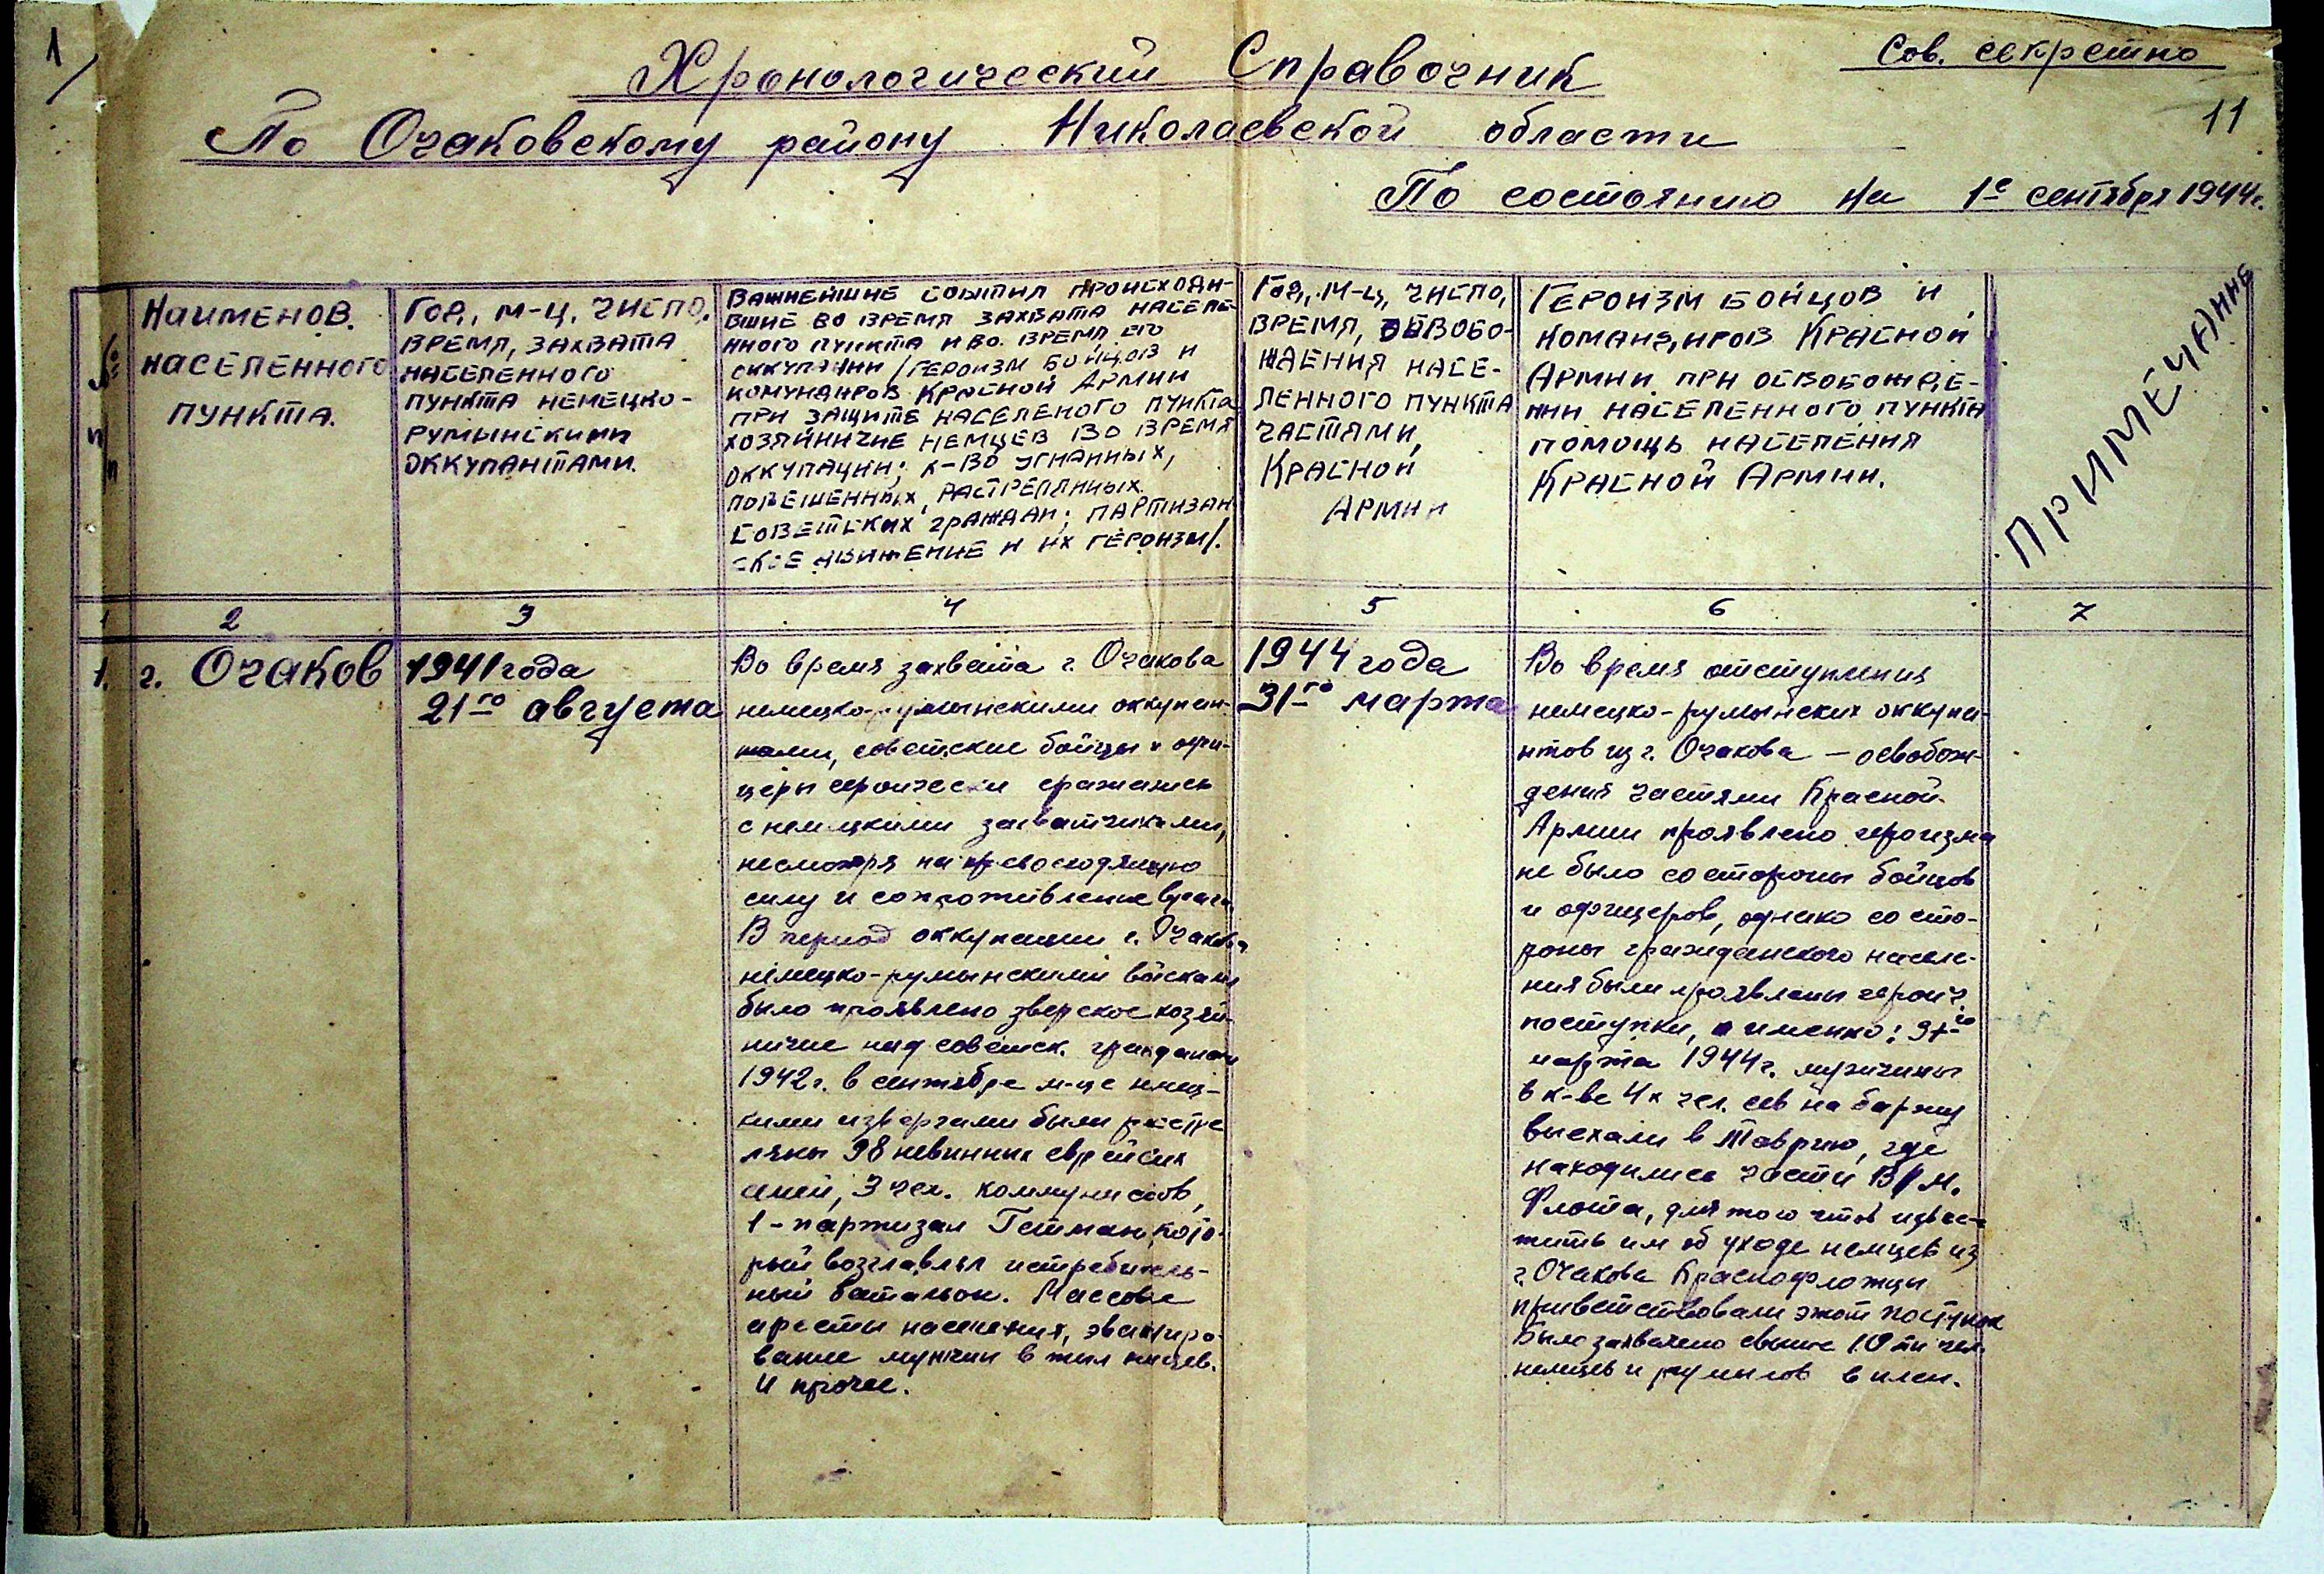 1/
Сов. секретно
11
Хронологический Справочник
По Очаковскому району Николаевской области
По состоянию на 1е сентября 1944г.
№
п
п
Наименов.
населенного
пункта.
Год, м-ц, число,
время, захвата
населенного
пункта немецко-
румынскими
оккупантами.
Важнейшие события происходи-
вшие во время захвата населе-
нного пункта и во время его
оккупации /героизм бойцов и
комундиров Красной Армии
при защите населеного пункта
хозяйничие немцев во время
оккупации; к-во угнанных,
повешенных, растрелянных
советских граждан; партизан
ское движение и их героизм/.
Год, м-ц, число,
время, освобо-
ждения насе-
ленного пункта
частями,
Красной
Армии
Героизм бойцов и
командиров Красной
Армии при освобожде-
нии населенного пункта
помощь населения
Красной Армии.
Примечание
1 2 3 4 5 6 7
1. г. Очаков
1941 года
21го августа
Во время захвата г. Очакова
немецко-румынскими оккупан-
тами, советские бойцы и офи-
церы героически сражались
с немецкими захватчиками,
несмотря на превосходящую
силу и сопротивление врага.
В период оккупации г. Очакова
немецко-румынскими войсками
было проявлено зверское хозяй-
ничие над советск. гражданами
1942г. в сентябре м-це немец-
кими извергами были растре
ляны 98 невинных еврейских
семей, 3 чел. коммунистов,
1-партизан Гетман, кото-
рый возглавлял истребитель-
ный батальон. Массовые
аресты населения, эвакуиро-
вание мужчин в тыл немцев.
И прочее.
1944 года
31го марта
Во время отступления
немецко-румынских оккупа-
нтов из г. Очакова — освобож-
дения частями Красной
Армии проявлено героизма
не было со стороны бойцов
и офицеров, однако со сто-
роны гражданского населе-
ния были проявлены героич.
поступки, а именно: 31го
марта 1944г. мужчины
в к-ве 4х чел. сев на баржу
выехали в Таврию, где
находились части В/М.
Флота, для того чтоб извес-
тить им об уходе немцев из
г. Очакова Краснофлотцы
приветствовали этот поступок
Было захвачено свыше 10ти чел.
немцев и румынов в плен.